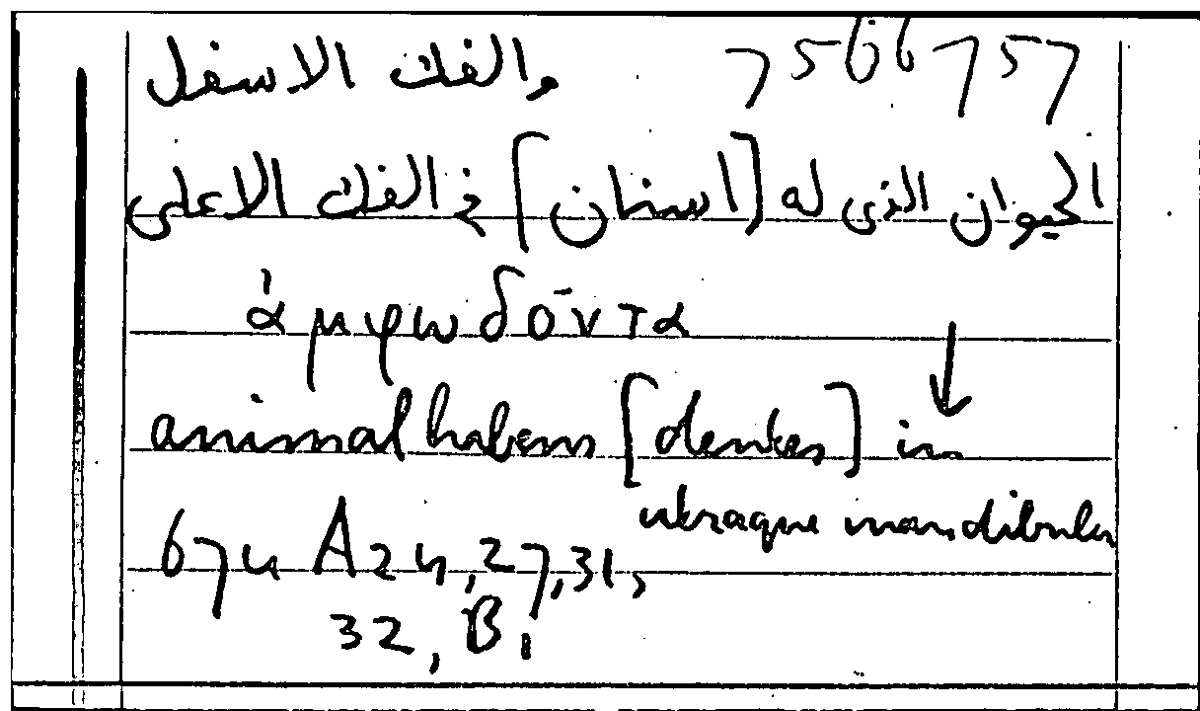 والفك الاسفل 7566757
الحيوان الذى له [اسنان] فى الفك الاعلى
ἀμφωδόντα
animal habens [dentes] in ↓
utraque mandibula
674 A24,27,31,
32, B1